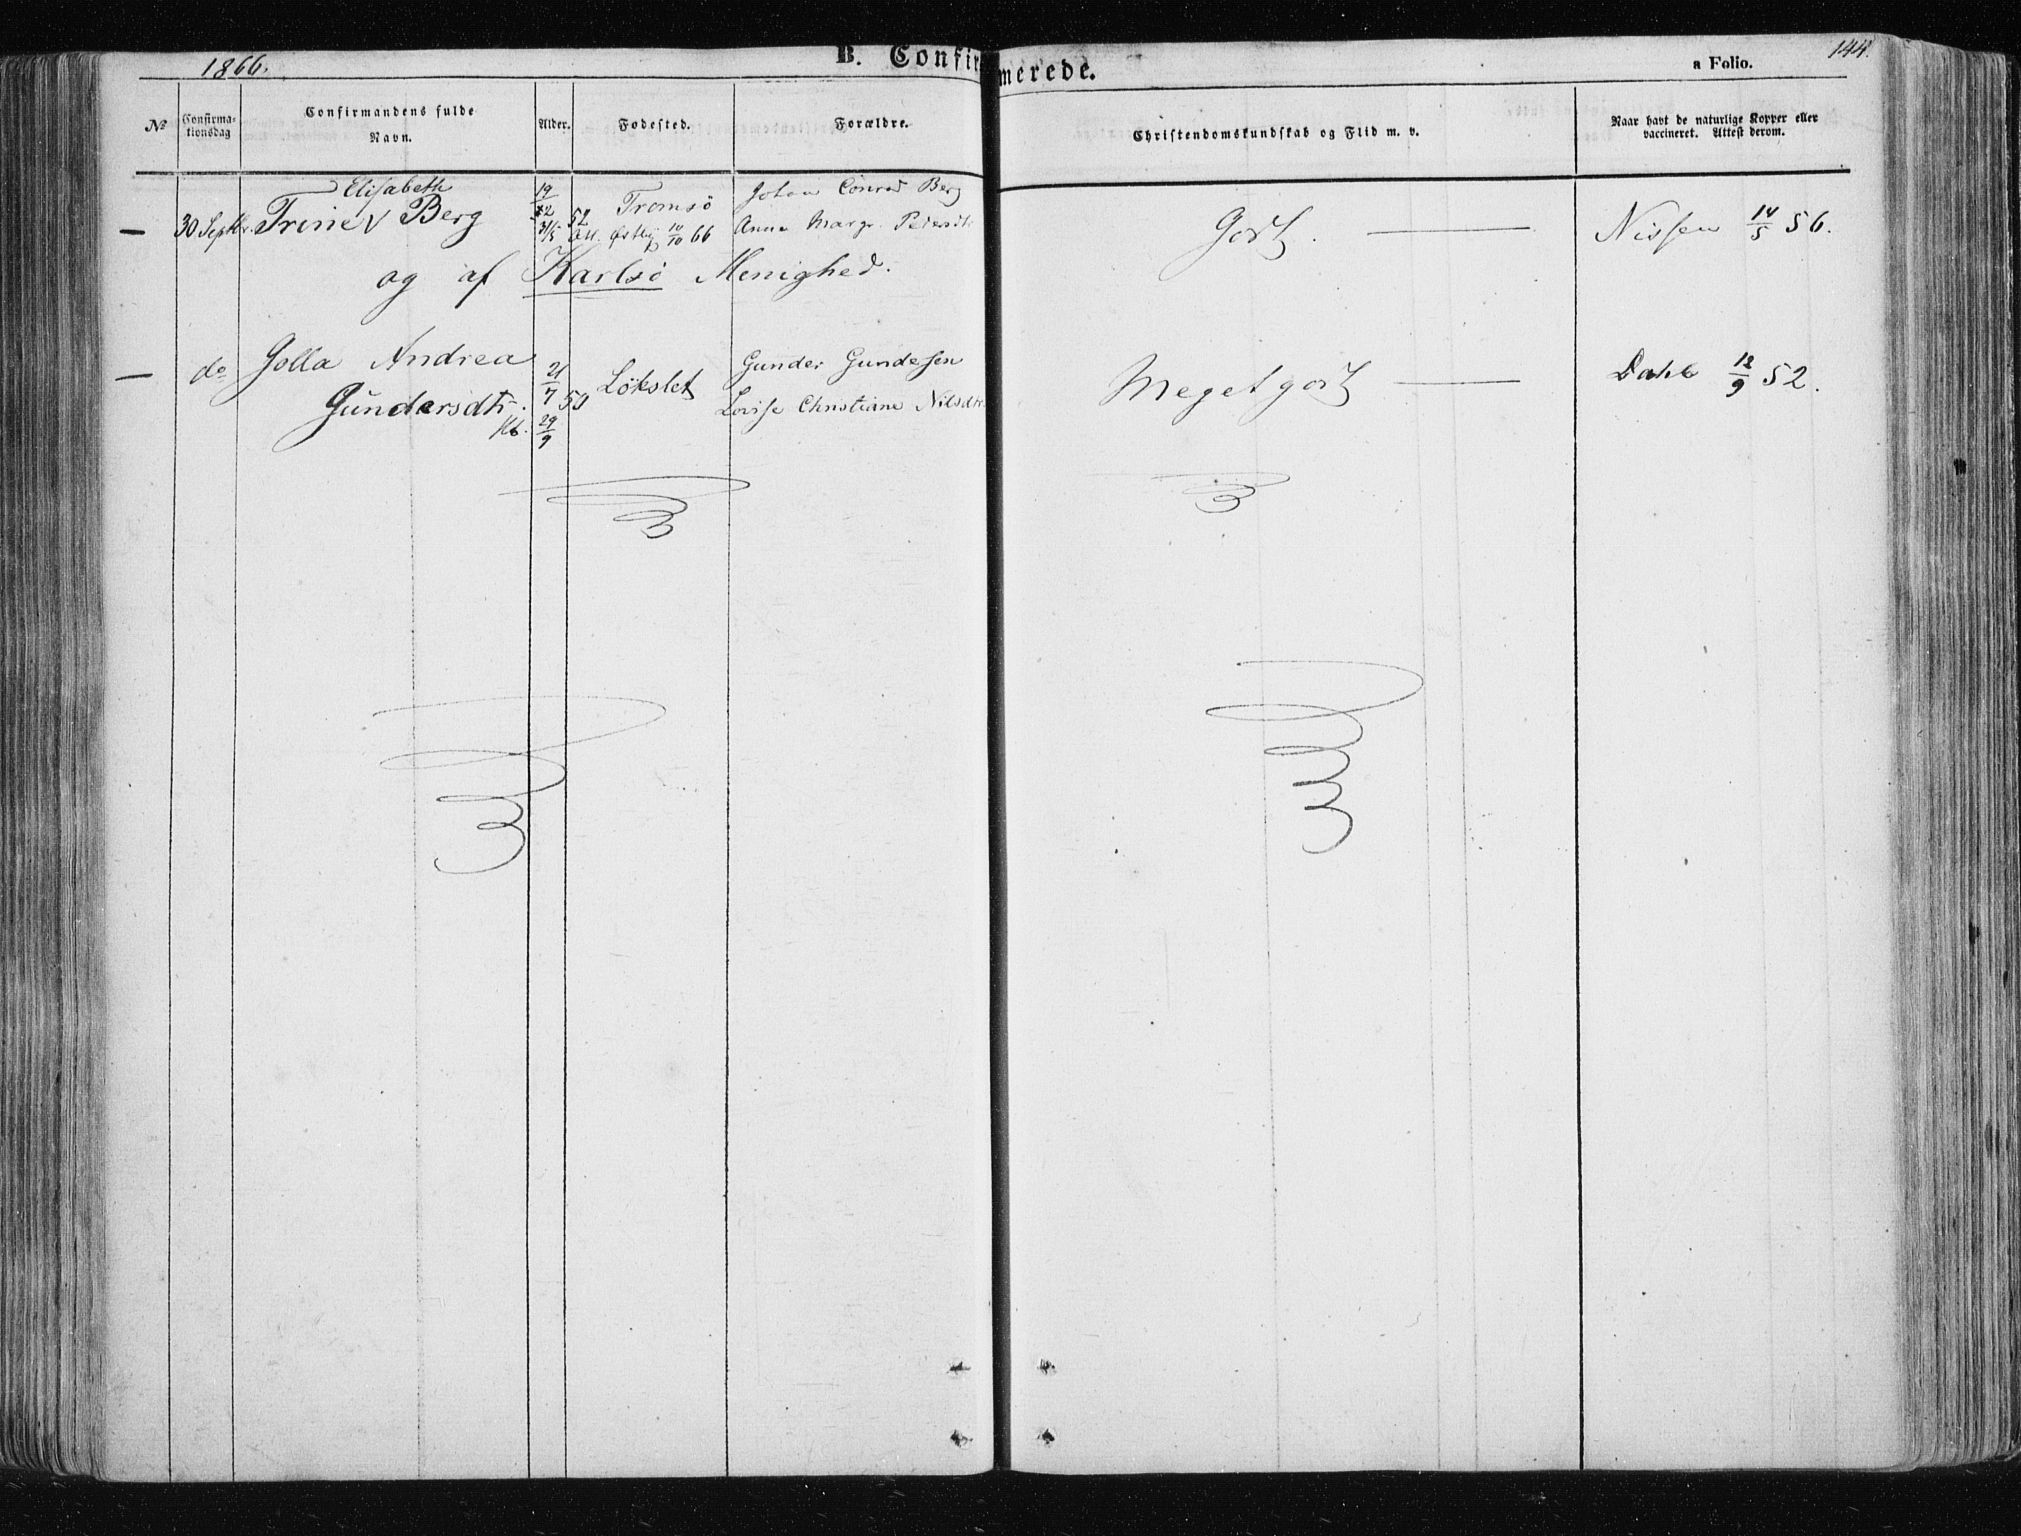 1866.
B. Confirmerede.
a Folio.
144.
No
Confirma-
tionsdag
Confirmandens fulde
Navn.
Alder.
Fødested.
Forældre.
Christendomskundskab og Flid m. v.
Naar havt de naturlige Kopper eller
vaccineret. Attest derom.
Elisabeth
— 30 Septbr. Trine V Berg
19
52
Tromsö
Østby 10/10 66
Johan Conrad Berg
Anna Margr. Pedersdtr
Godt.
Nissen 14/5 56.
og af Karlsö Menighed.
— do Golla Andrea
Gundersdtr.
21/7 50
29/9
Lökslet
Gunder Gundersen
Lovise Christiane Nilsdtr
Meget godt
Dahl 12/9 52.